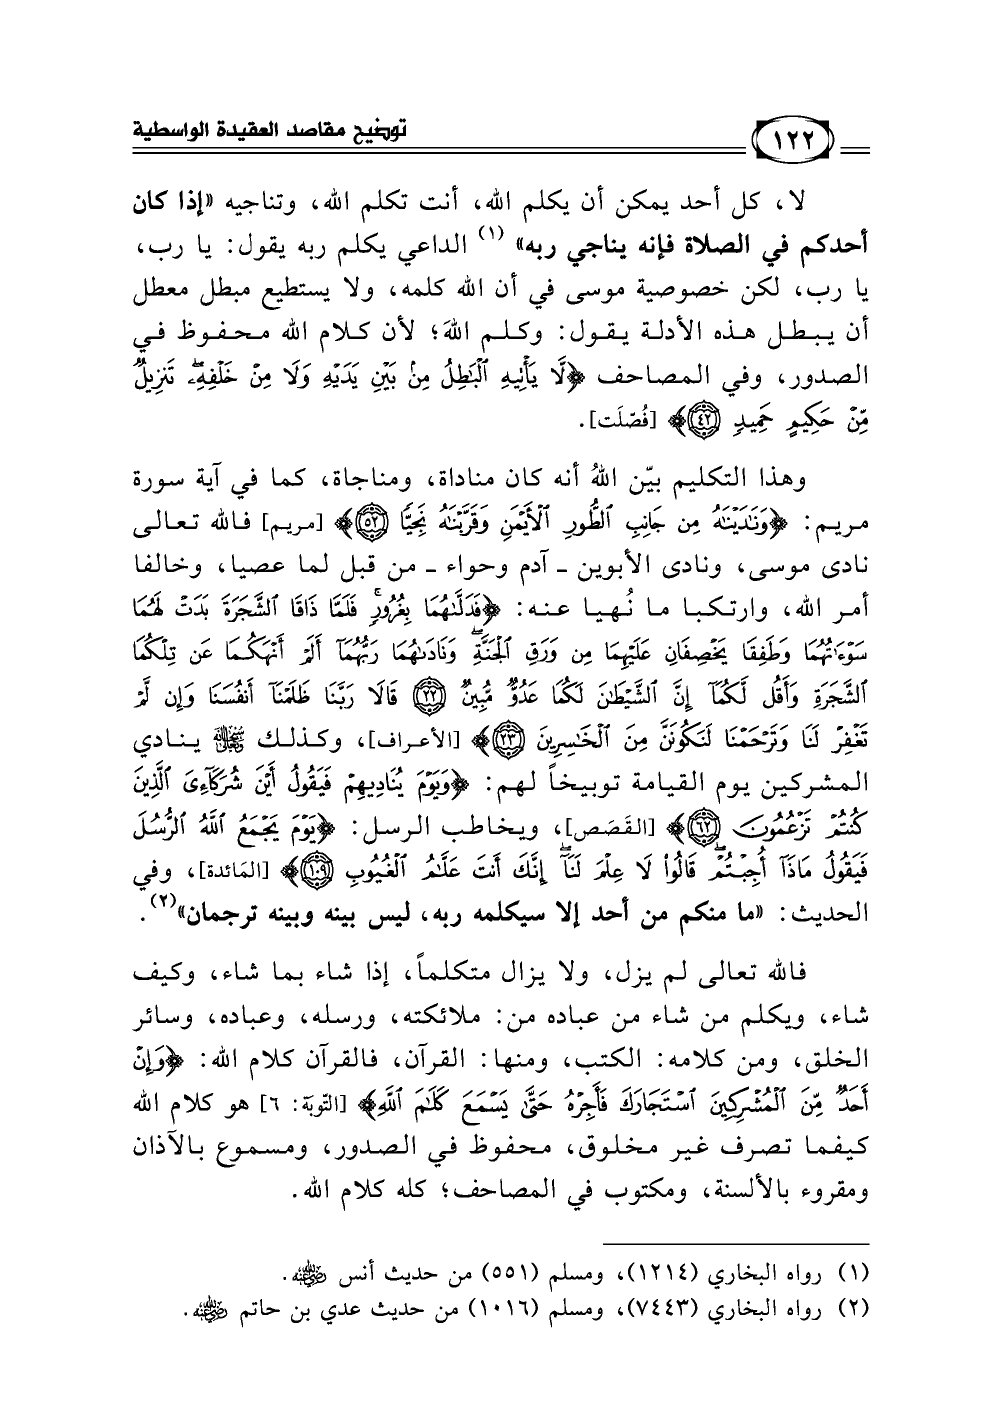 توضيح مقاصد العقيدة الواسطية
١٢٢
لا، كل أحد يمكن أن يكلم الله، أنت تكلم الله، وتناجيه «إذا كان
أحدكم في الصلاة فإنه يناجي ربه» (١) الداعي يكلم ربه يقول: يا رب،
يا رب، لكن خصوصية موسى في أن الله كلمه، ولا يستطيع مبطل معطل
أن يبطل هذه الأدلة يقول: وكلم اللهَ؛ لأن كلام الله محفوظ في
الصدور، وفي المصاحف ﴿لَّا يَأْتِيهِ الْبَاطِلُ مِنْ بَيْنِ يَدَيْهِ وَلَا مِنْ خَلْفِهِۦۖ تَنزِيلٌ
مِّنْ حَكِيمٍ حَمِيدٍ ٤٢﴾ [فُصّلَت].
وهذا التكليم بيّن اللهُ أنه كان مناداة، ومناجاة، كما في آية سورة
مريم: ﴿وَنَٰدَيْنَٰهُ مِن جَانِبِ ٱلطُّورِ ٱلْأَيْمَنِ وَقَرَّبْنَٰهُ نَجِيًّا ٥٢﴾ [مريم] فالله تعالى
نادى موسى، ونادى الأبوين ـ آدم وحواء ـ من قبل لما عصيا، وخالفا
أمر الله، وارتكبا ما نُهيا عنه: ﴿فَدَلَّىٰهُمَا بِغُرُورٍۚ فَلَمَّا ذَاقَا ٱلشَّجَرَةَ بَدَتْ لَهُمَا
سَوْءَٰتُهُمَا وَطَفِقَا يَخْصِفَانِ عَلَيْهِمَا مِن وَرَقِ ٱلْجَنَّةِۖ وَنَادَىٰهُمَا رَبُّهُمَآ أَلَمْ أَنْهَكُمَا عَن تِلْكُمَا
ٱلشَّجَرَةِ وَأَقُل لَّكُمَآ إِنَّ ٱلشَّيْطَٰنَ لَكُمَا عَدُوٌّ مُّبِينٌ ٢٢ قَالَا رَبَّنَا ظَلَمْنَآ أَنفُسَنَا وَإِن لَّمْ
تَغْفِرْ لَنَا وَتَرْحَمْنَا لَنَكُونَنَّ مِنَ ٱلْخَٰسِرِينَ ٢٣﴾ [الأعراف]، وكذلك سبحانه ينادي
المشركين يوم القيامة توبيخاً لهم: ﴿وَيَوْمَ يُنَادِيهِمْ فَيَقُولُ أَيْنَ شُرَكَآءِىَ ٱلَّذِينَ
كُنتُمْ تَزْعُمُونَ ٦٢﴾ [القَصَص]، ويخاطب الرسل: ﴿يَوْمَ يَجْمَعُ ٱللَّهُ ٱلرُّسُلَ
فَيَقُولُ مَاذَآ أُجِبْتُمْۖ قَالُوا۟ لَا عِلْمَ لَنَآۖ إِنَّكَ أَنتَ عَلَّٰمُ ٱلْغُيُوبِ ١٠٩﴾ [المَائدة]، وفي
الحديث: «ما منكم من أحد إلا سيكلمه ربه، ليس بينه وبينه ترجمان»(٢).
فالله تعالى لم يزل، ولا يزال متكلماً، إذا شاء بما شاء، وكيف
شاء، ويكلم من شاء من عباده من: ملائكته، ورسله، وعباده، وسائر
الخلق، ومن كلامه: الكتب، ومنها: القرآن، فالقرآن كلام الله: ﴿وَإِنْ
أَحَدٌ مِّنَ ٱلْمُشْرِكِينَ ٱسْتَجَارَكَ فَأَجِرْهُ حَتَّىٰ يَسْمَعَ كَلَٰمَ ٱللَّهِ﴾ [التّوبَة: ٦] هو كلام الله
كيفما تصرف غير مخلوق، محفوظ في الصدور، ومسموع بالآذان
ومقروء بالألسنة، ومكتوب في المصاحف؛ كله كلام الله.
(١) رواه البخاري (١٢١٤)، ومسلم (٥٥١) من حديث أنس رضي الله عنه.
(٢) رواه البخاري (٧٤٤٣)، ومسلم (١٠١٦) من حديث عدي بن حاتم رضي الله عنه.